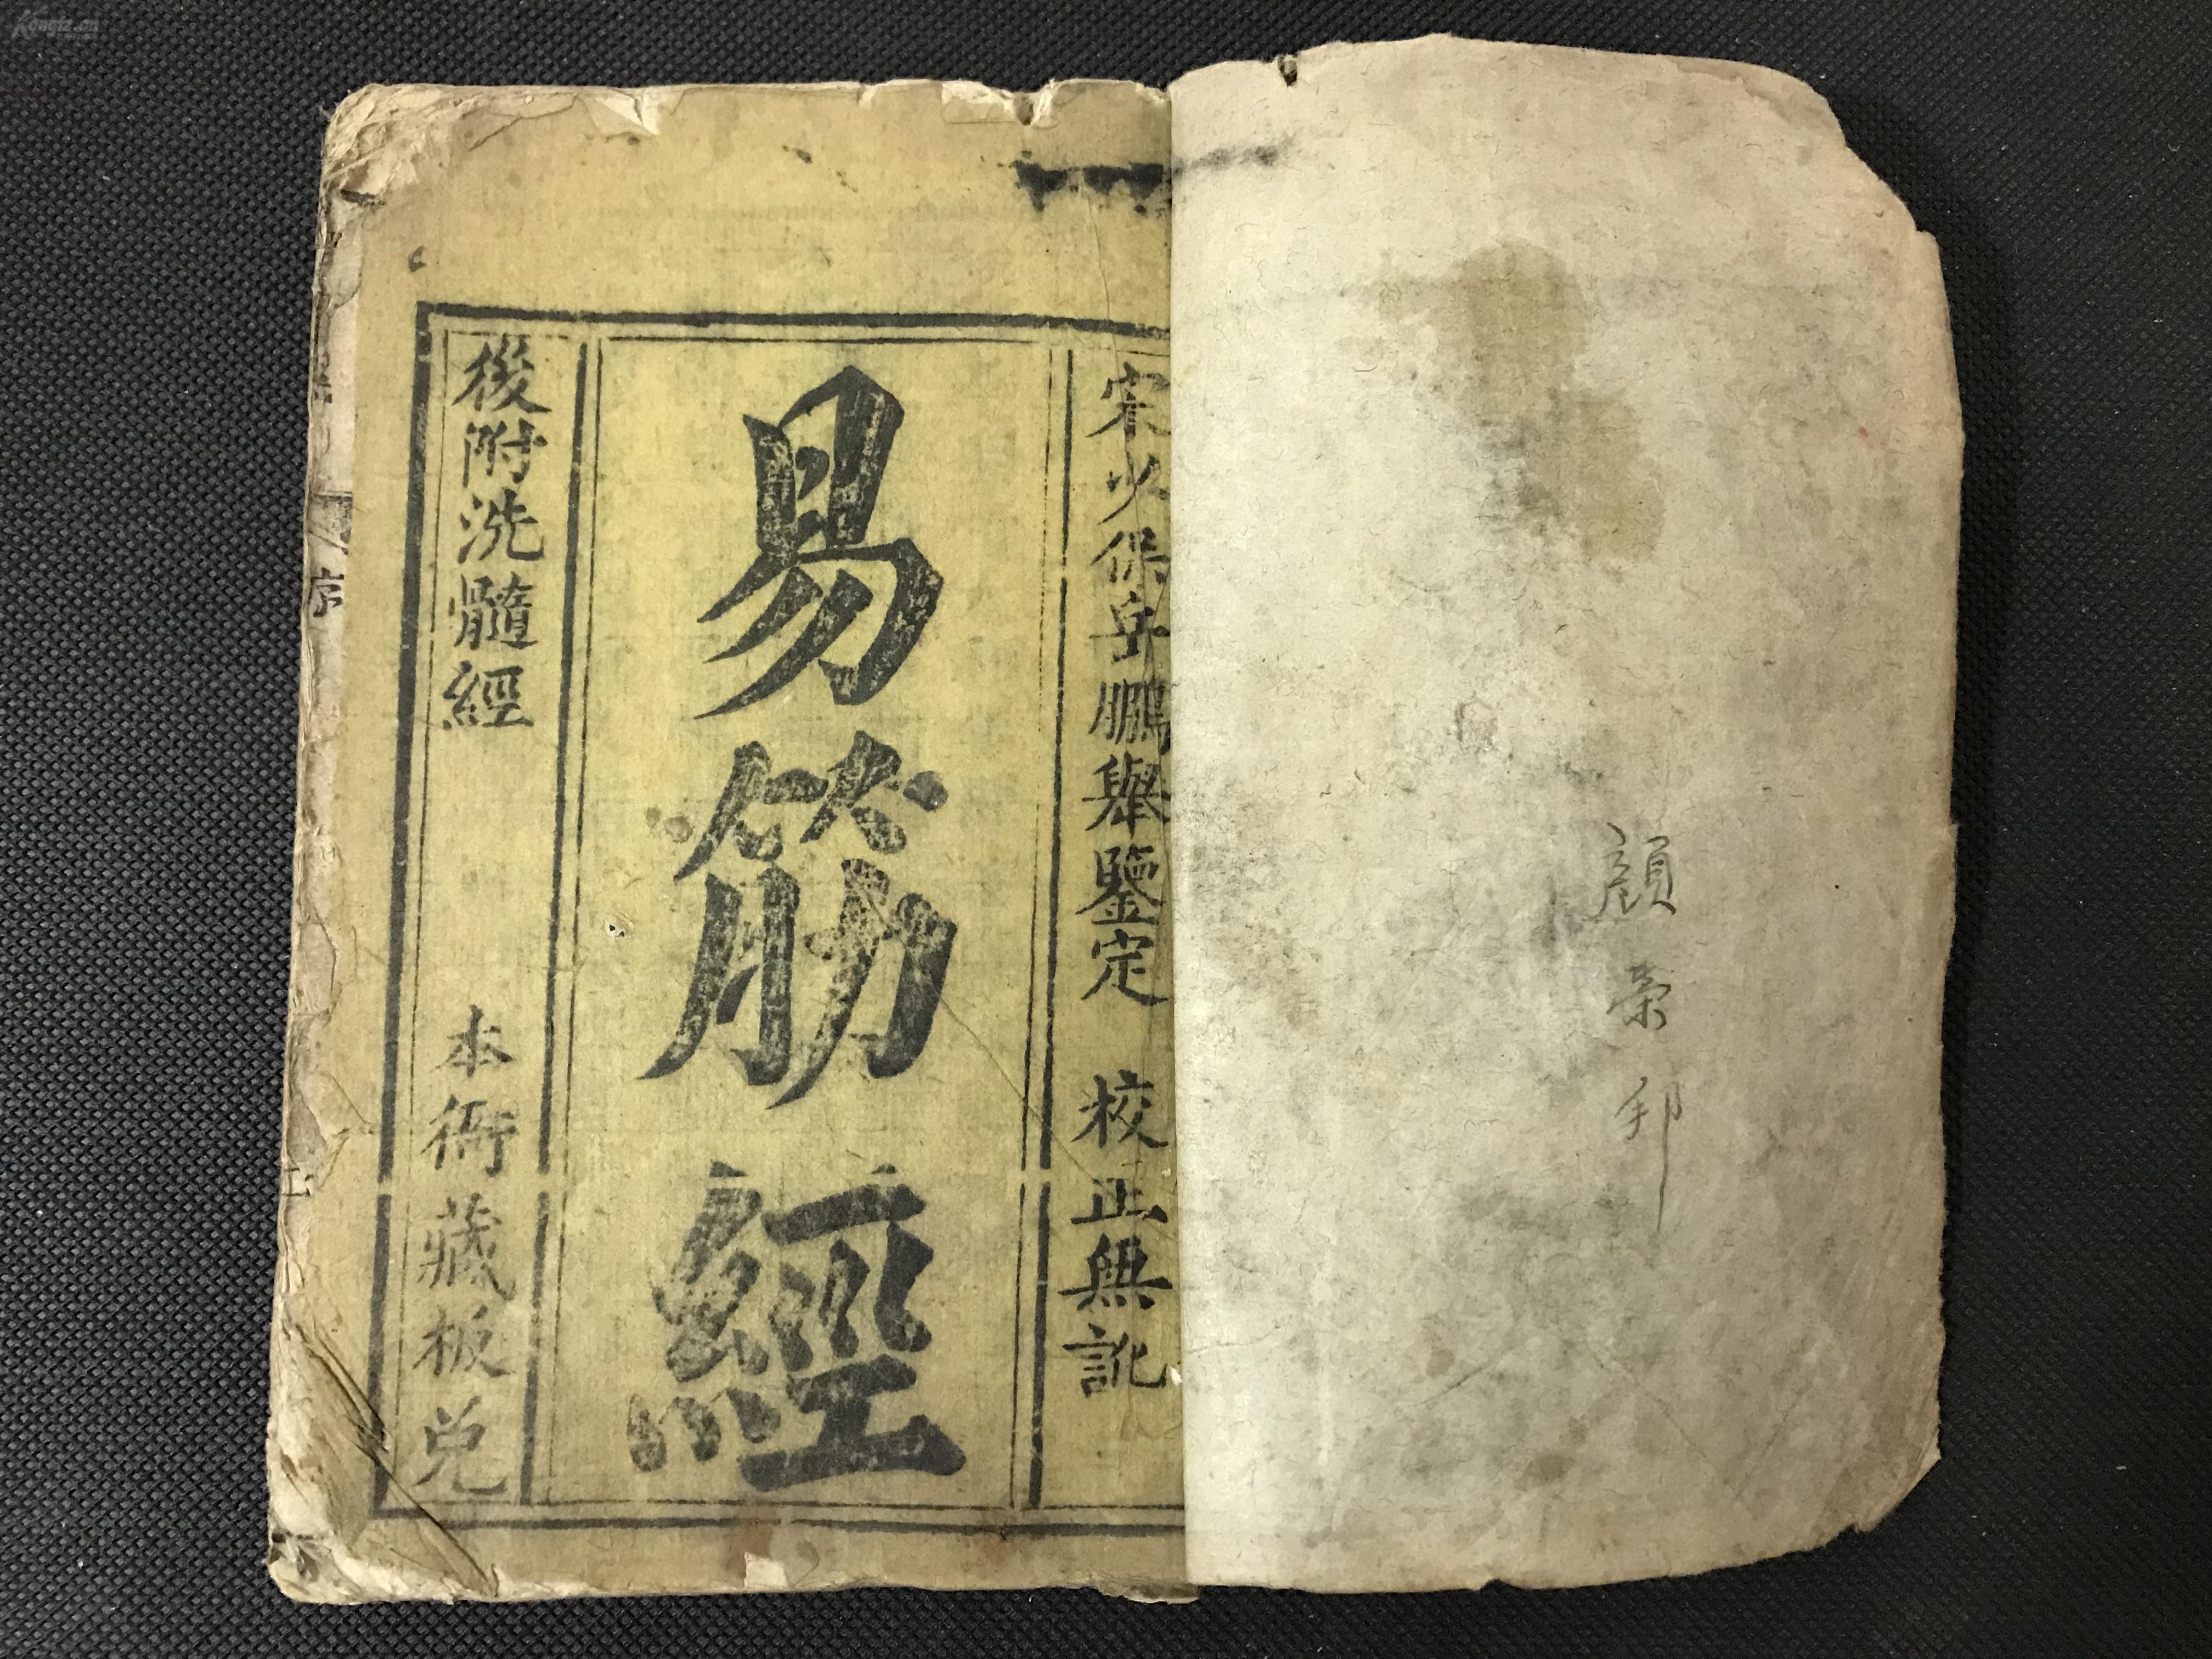 顔榮邦
宋少保岳鵬舉鑒定 校正無訛
易筋經
後附洗髓經 本衙藏板兌
序
Kongfz.cn